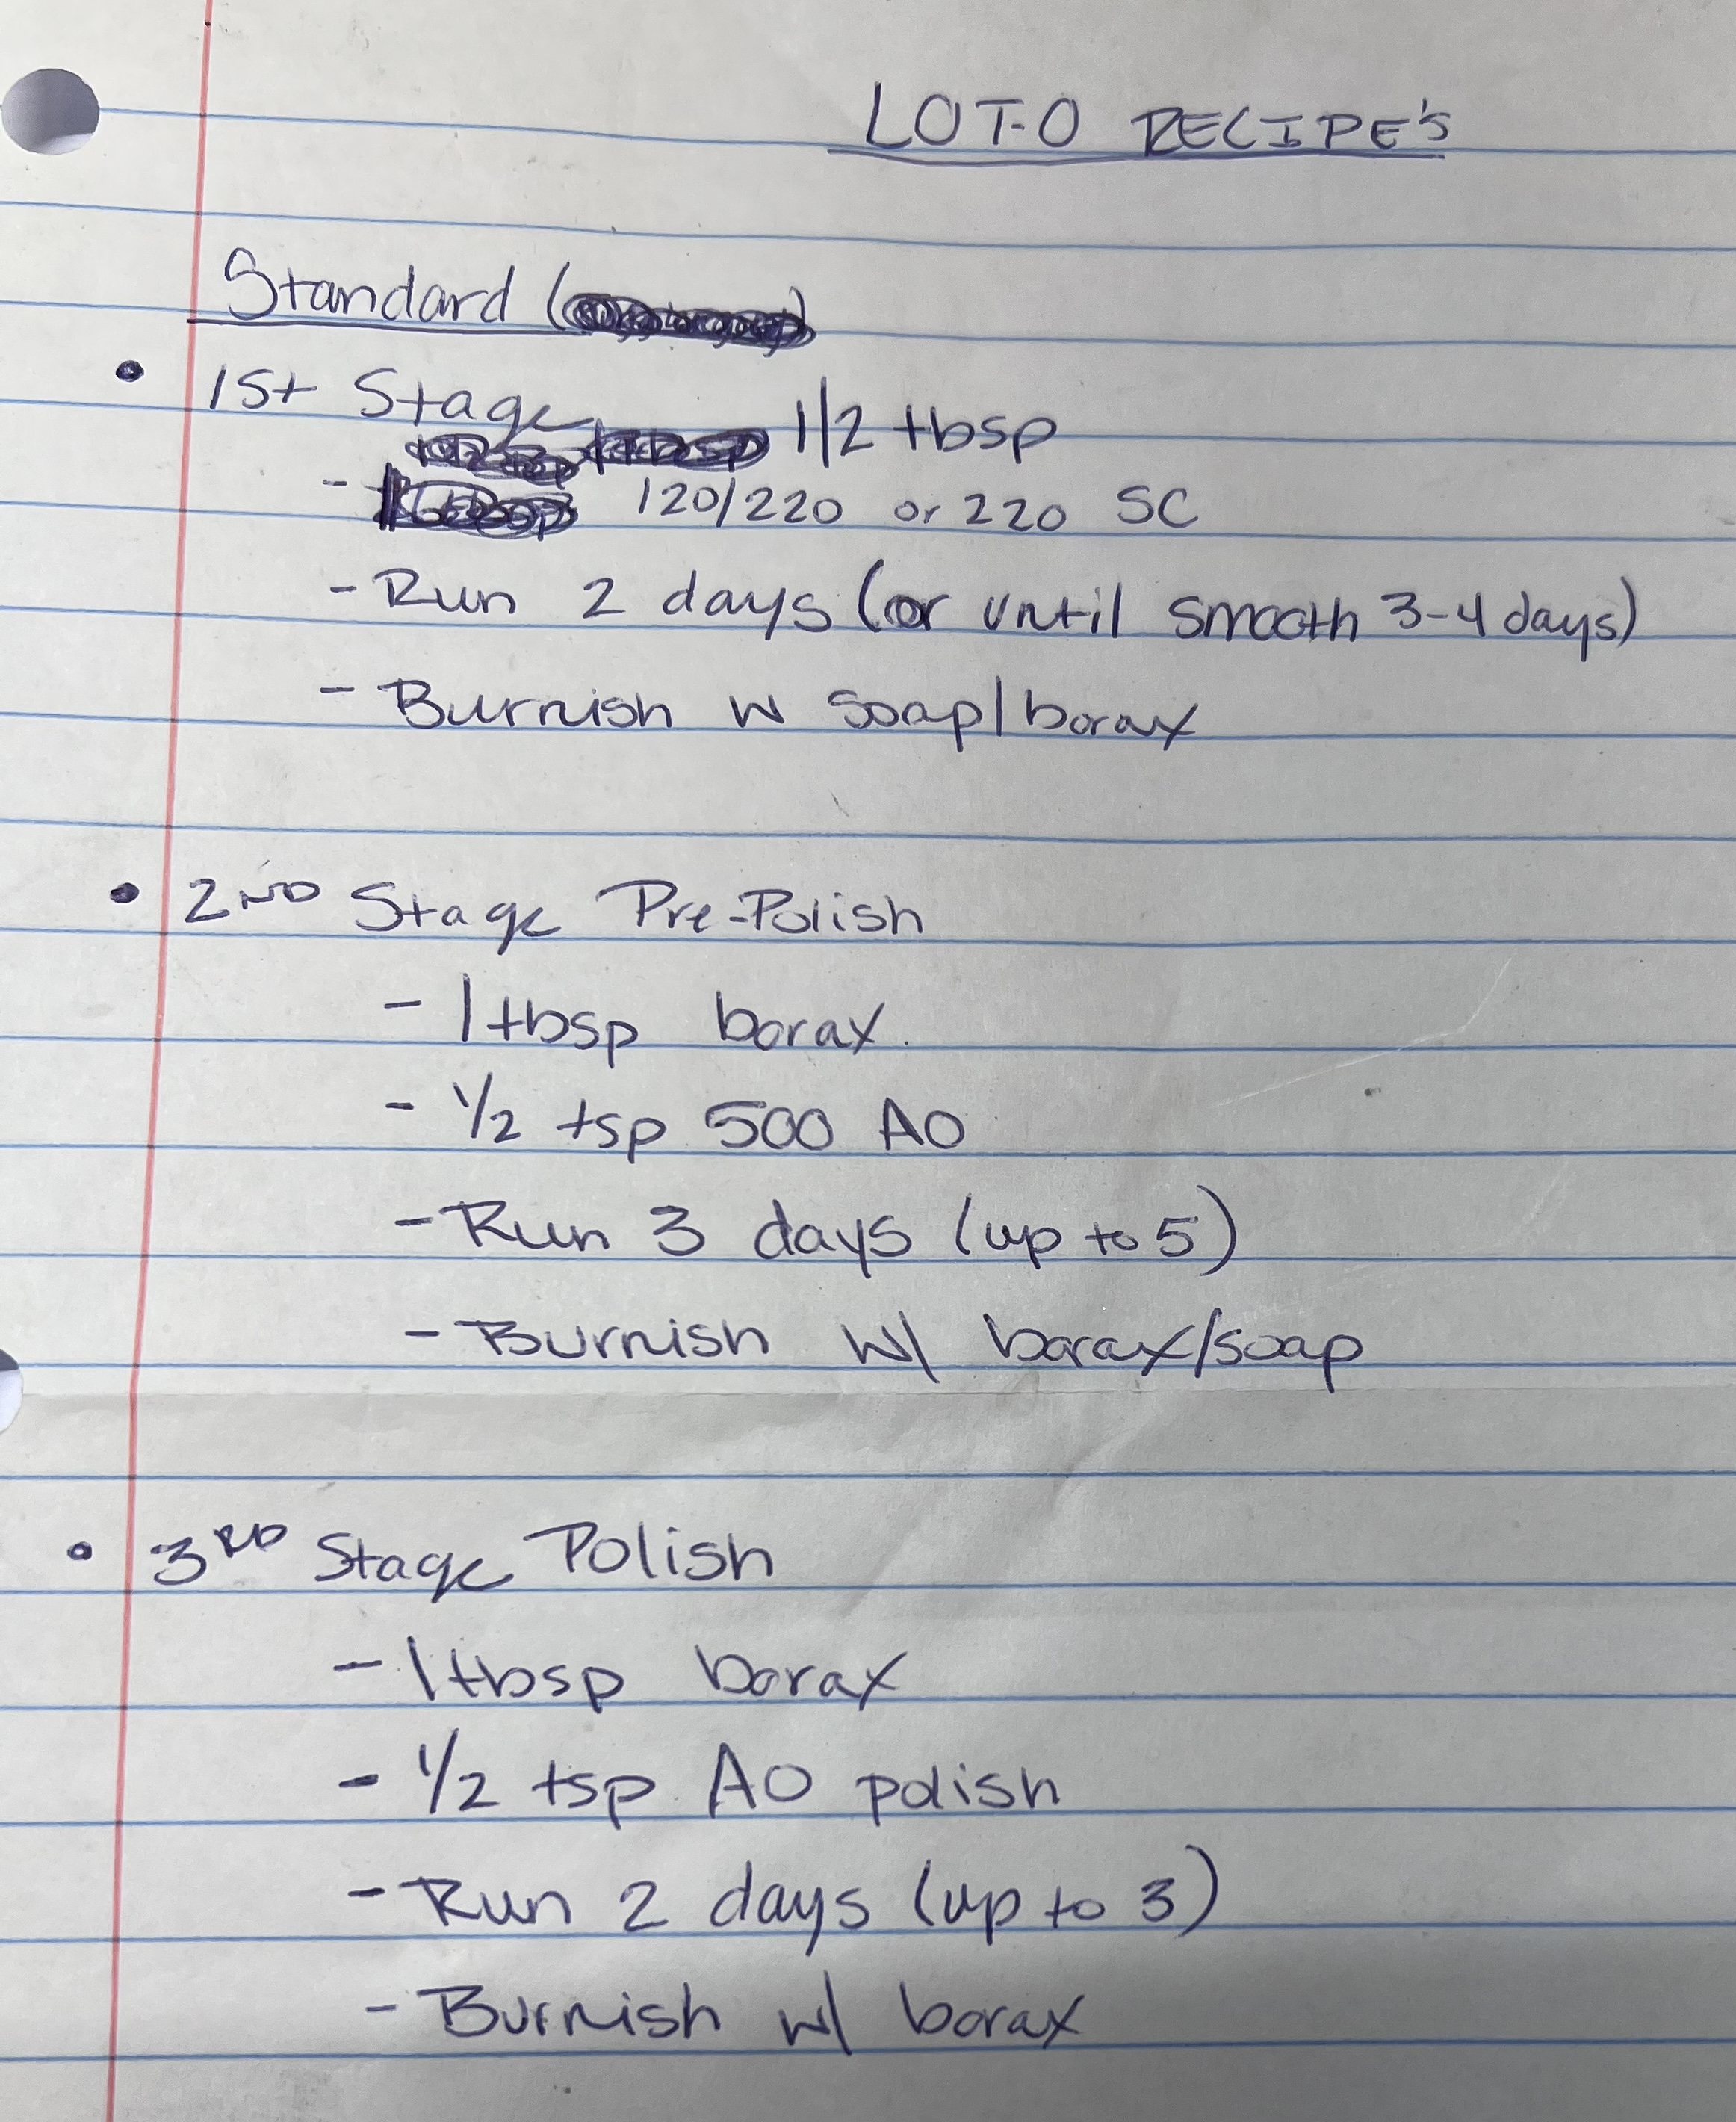 LOT-O RECIPE'S
Standard (
• 1st Stage
1/2 tbsp
- 120/220 or 220 SC
- Run 2 days (or until smooth 3-4 days)
- Burnish w soap/borax
• 2ND Stage Pre-Polish
- 1 tbsp borax
- 1/2 tsp 500 AO
- Run 3 days (up to 5)
- Burnish w/ borax/soap
• 3RD Stage Polish
- 1 tbsp borax
- 1/2 tsp AO polish
- Run 2 days (up to 3)
- Burnish w/ borax